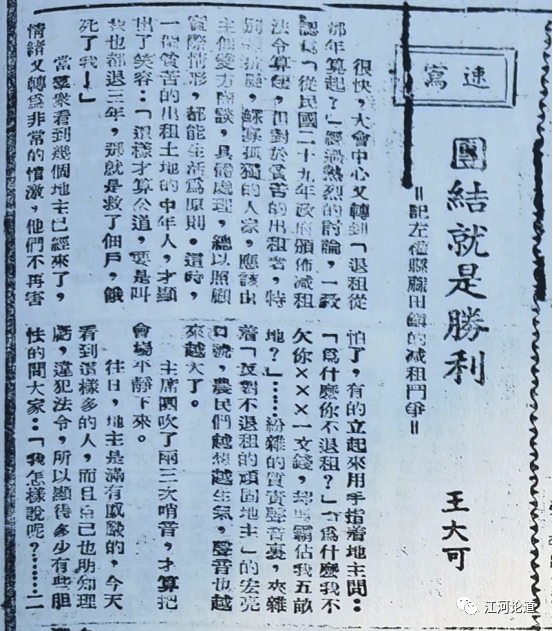 速寫
團結就是勝利
=記左權縣麻田鎮的減租鬥爭=
王大可
很快,大會中心又轉到「退租從
那年算起?」經過熱烈的討論,一致
認為「從民國二十九年政府頒佈減租
法令算起,但對於貧苦的出租者,特
別是抗屬,鰥寡孤獨的人家,應該由
主佃雙方商談,具體處理,總以照顧
實際情形,都能生活為原則。這時,
一個貧苦的出租土地的中年人,才顯
出了笑容:「這樣才算公道,要是叫
我也都退三年,那就是救了佃戶,餓
死了我!」
當羣衆看到幾個地主已經來了,
情緒又轉為非常的憤激,他們不再害
怕了,有的立起來用手指着地主問:
「為什麼你不退租?」「為什麼我不
欠你×××一文錢,霸佔我五畝
地?」……紛雜的質責聲音裏,夾雜
着「反對不退租的頑固地主」的宏亮
口號,農民們越想越生氣,聲音也越
來越大了。
主席團吹了兩三次哨音,才算把
會場平靜下來。
往日,地主是滿有威嚴的,今天
看到這樣多的人,而且自己也明知理
虧,違犯法令,所以顯得多少有些胆
怯的問大家:「我怎樣說呢?……二
江河论道